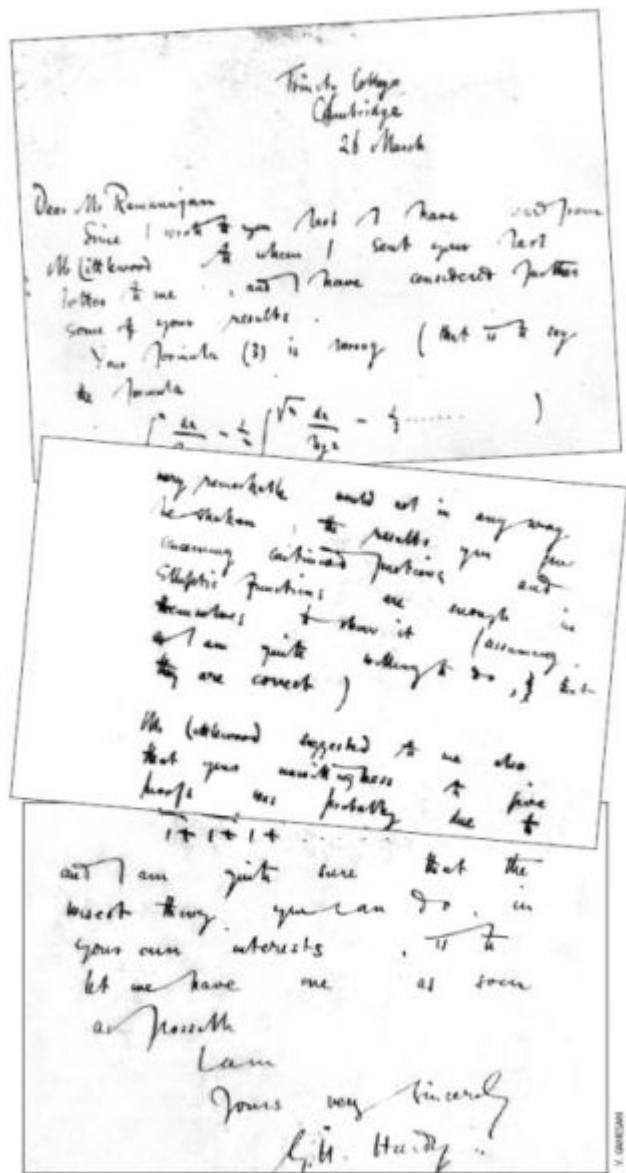 Trinity College
Cambridge
26 March
Dear Mr Ramanujan
Since I wrote to you last I have heard from
Mr Littlewood to whom I sent your last
letter to me, and I have considered further
some of your results.
Your formula (3) is wrong (that is to say
the formula
∫ⁿ dx/ - 1/2 ∫^√n dx/log x - 1/3 ....... )
very remarkable would not in any way
be shaken, the results you give
concerning continued fractions and
elliptic functions are enough in
themselves to show it (assuming
as I am quite willing to do, that
they are correct)
Mr Littlewood suggested to me also
that your unwillingness to give
proofs was probably due to
1+ 1+ 1+ ......
and I am quite sure that the
wisest thing you can do, in
your own interests, is to
let me have one as soon
as possible
I am
Yours very sincerely
G.H. Hardy
V. GANESAN